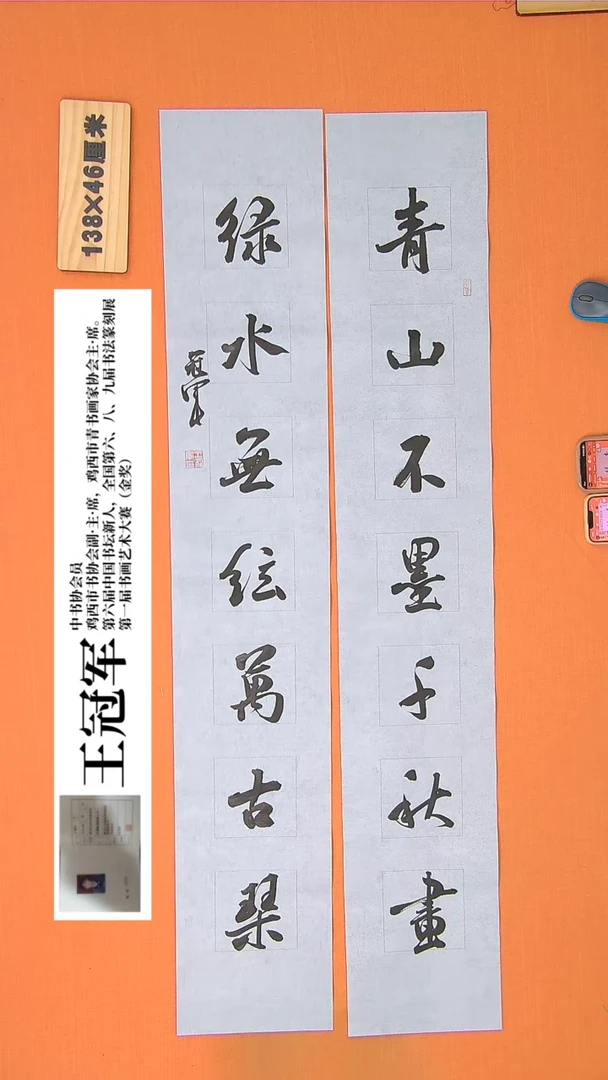 青山不墨千秋畫
绿水無絃萬古琴
冠军
138×46厘米
中书协会员
鸡西市书协会副·主·席，鸡西市青书画家协会主·席。
第六届中国书坛新人，全国第六、八、九届书法篆刻展
第一届书画艺术大赛（金奖）
王冠军